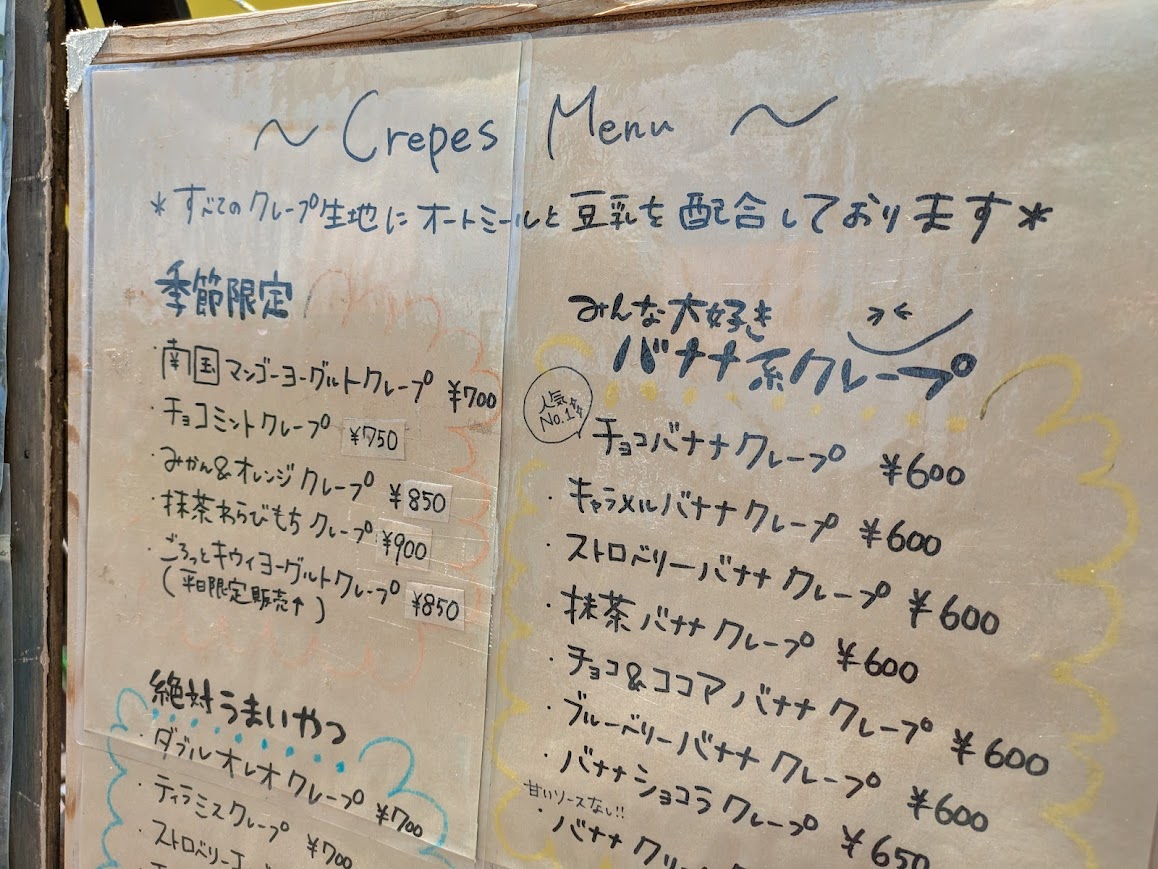 ～ Crepes Menu ～
*すべてのクレープ生地にオートミールと豆乳を配合しております*
季節限定
・南国マンゴーヨーグルトクレープ ¥700
・チョコミントクレープ ¥750
・みかん&オレンジクレープ ¥850
・抹茶わらびもちクレープ ¥900
・ごろっとキウィヨーグルトクレープ ¥850
(平日限定販売↑)
絶対うまいやつ
・ダブルオレオクレープ ¥700
・ティラミスクレープ ¥700
・ストロベリー
みんな大好き
バナナ系クレープ
人気
No.1
チョコバナナクレープ ¥600
・キャラメルバナナクレープ ¥600
・ストロベリーバナナクレープ ¥600
・抹茶バナナクレープ ¥600
・チョコ&ココアバナナクレープ ¥600
・ブルーベリーバナナクレープ ¥600
・バナナショコラクレープ ¥650
甘いソースなし!!
・バナナ